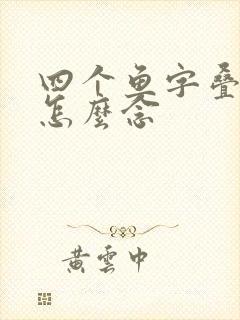 四个魚字叠
怎麼念
黄雲中